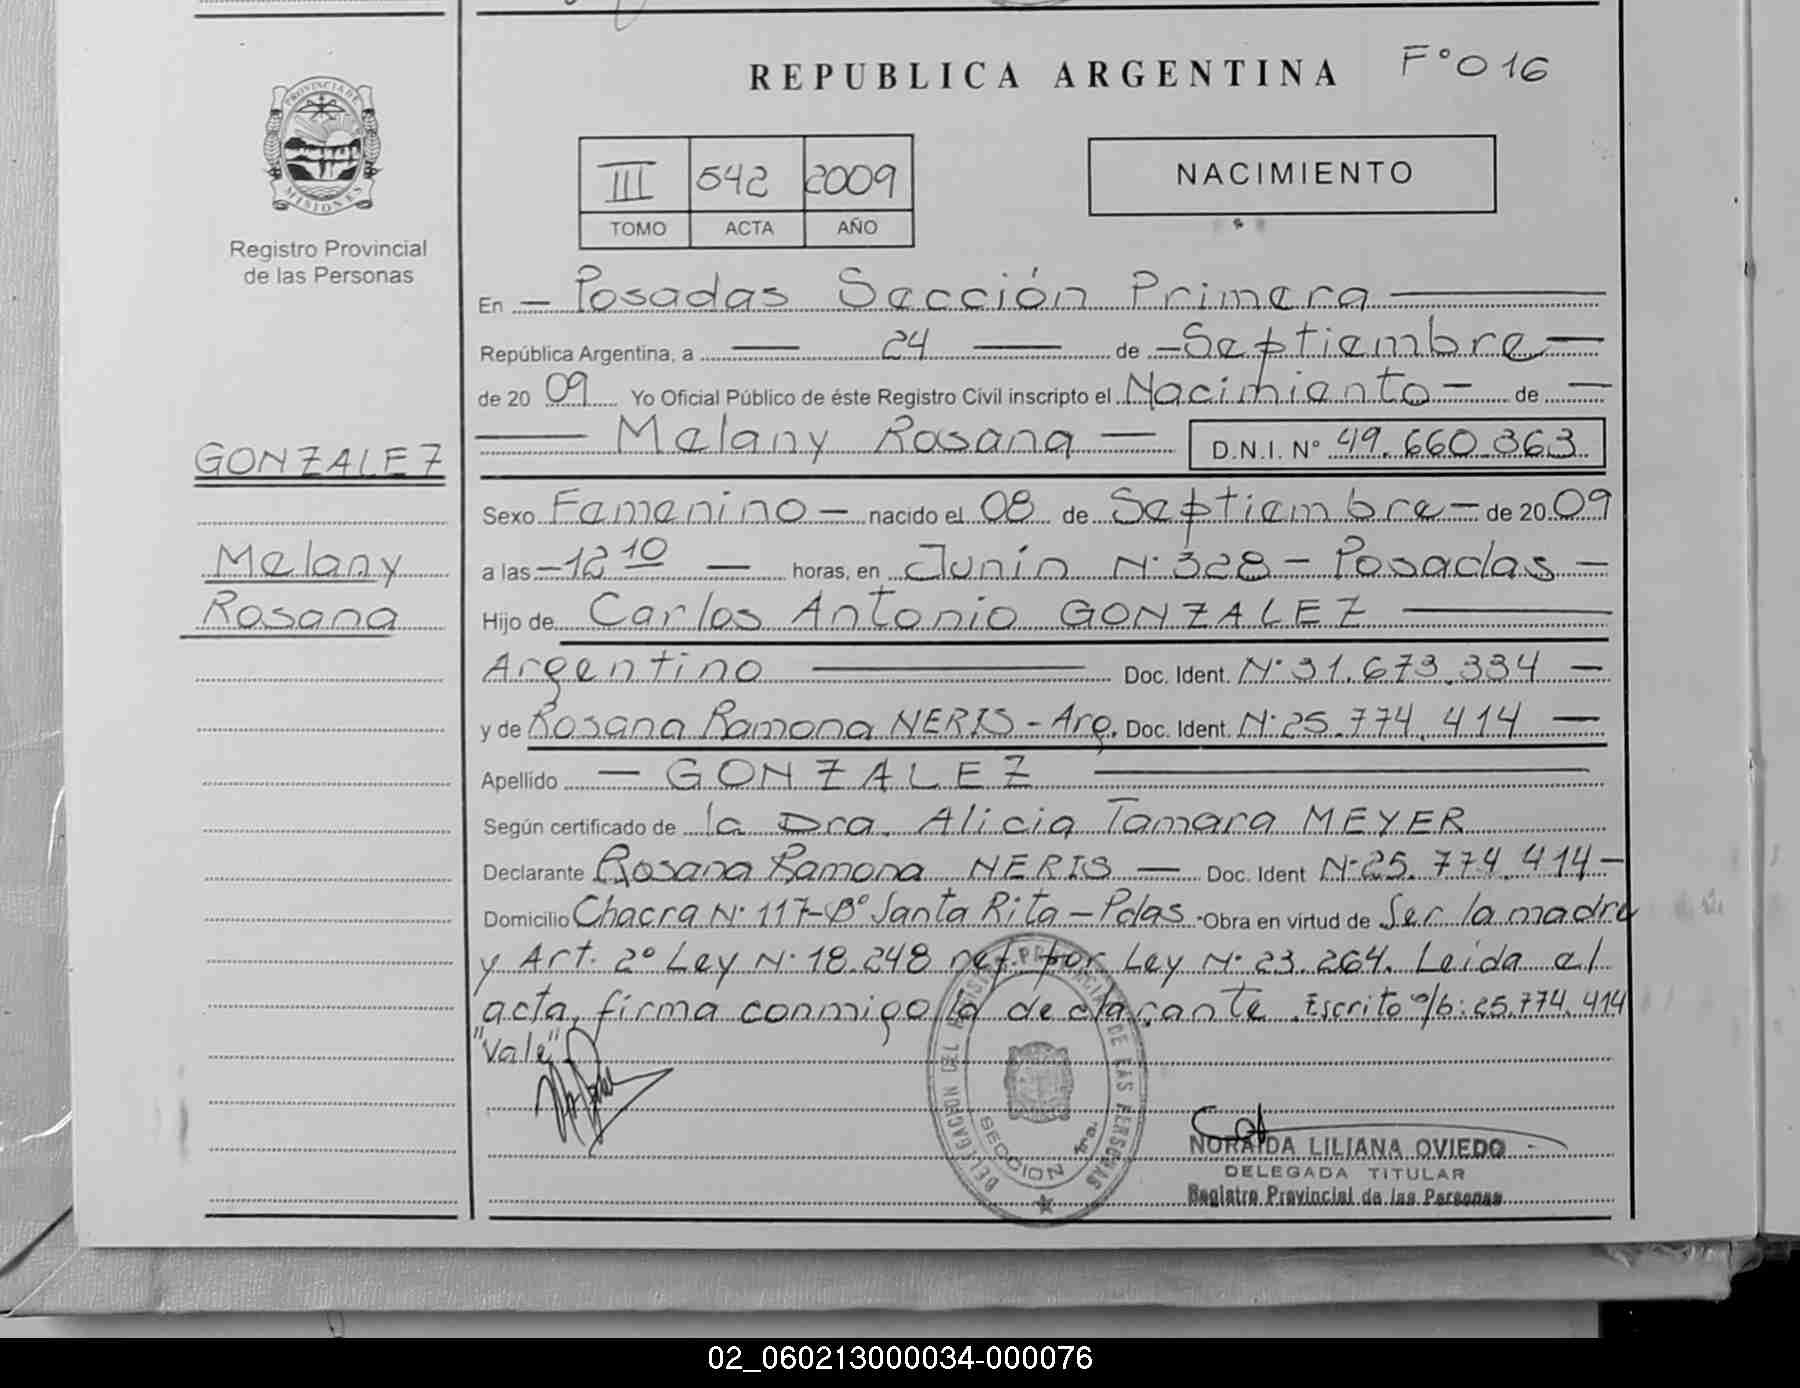 REPUBLICA ARGENTINA
F° 016
PROVINCIA DE
MISIONES
Registro Provincial
de las Personas
III 542 2009
TOMO ACTA AÑO
NACIMIENTO
En - Posadas Sección Primera
República Argentina, a 24 de - Septiembre -
de 20 09 Yo Oficial Público de éste Registro Civil inscripto el Nacimiento - de -
Melany Rosana - D.N.I. N° 49.660.363
GONZALEZ
Melany
Rosana
Sexo Femenino - nacido el 08 de Septiembre - de 20 09
a las - 12 10 - horas, en Junín N° 328 - Posadas -
Hijo de Carlos Antonio GONZALEZ
Argentino Doc. Ident. N° 31.673.334 -
y de Rosana Ramona NERIS - Arg. Doc. Ident. N° 25.774.414 -
Apellido - GONZALEZ
Según certificado de la Dra. Alicia Tamara MEYER
Declarante Rosana Ramona NERIS - Doc. Ident N° 25.774.414 -
Domicilio Chacra N° 117 - B° Santa Rita - Pdas. Obra en virtud de Ser la madre
y Art. 2° Ley N° 18.248 ref. por Ley N° 23.264. Leida el
acta, firma conmigo la declarante. Escrito s/b: 25.774.414
"Vale"
DELEGACION DEL REGISTRO PROVINCIAL DE LAS PERSONAS
SECCION 1ra.
NORAIDA LILIANA OVIEDO
DELEGADA TITULAR
Registro Provincial de las Personas
02_060213000034-000076